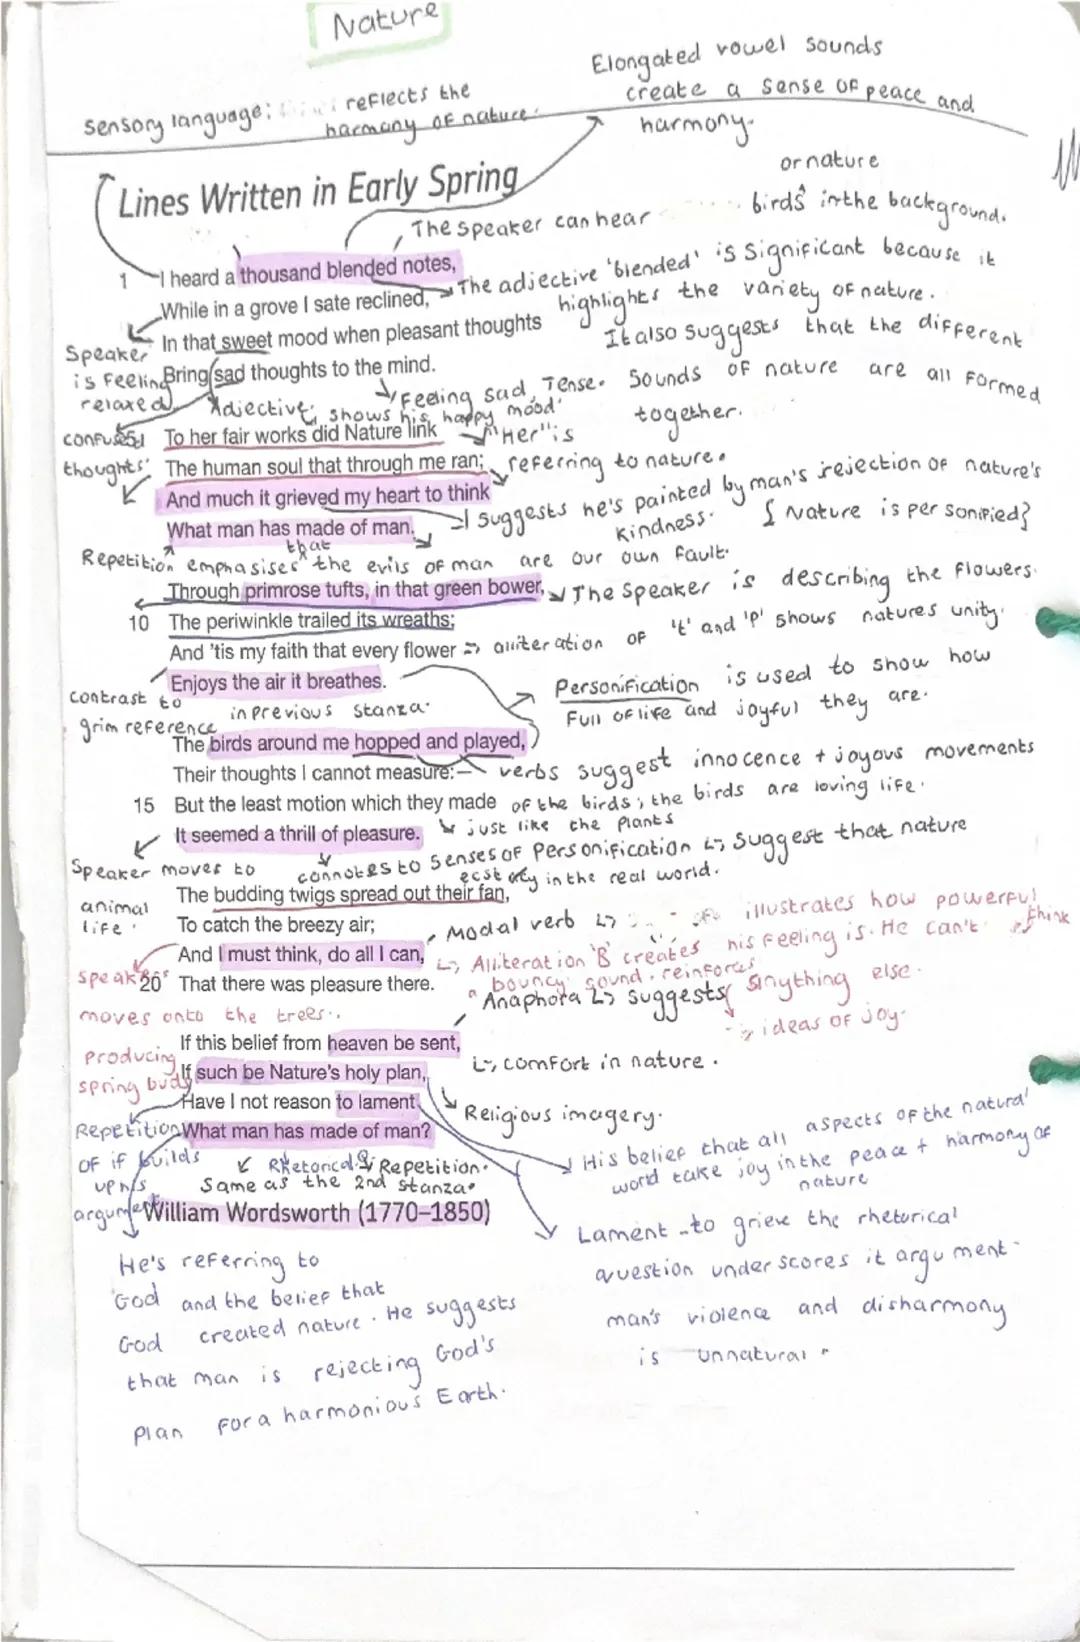 Nature
Elongated vowel sounds
create a sense of peace and
harmony.
sensory language: reflects the
harmony of nature.
or nature
Lines Written in Early Spring
The speaker can hear birds in the background.
1 I heard a thousand blended notes,
The adjective 'blended' is significant because it
While in a grove I sate reclined,
highlights the variety of nature.
In that sweet mood when pleasant thoughts
It also suggests that the different
Speaker
is feeling
relaxed
Bring sad thoughts to the mind.
Feeling sad, Tense. Sounds of nature are all formed
together.
Adjective, shows his happy mood'
confused
thoughts'
5 To her fair works did Nature link
"Her" is
The human soul that through me ran;
referring to nature.
And much it grieved my heart to think
I suggests he's painted by man's rejection of nature's
kindness. { Nature is personified}
What man has made of man.
Repetition emphasises that the evils of man are our own fault.
Through primrose tufts, in that green bower,
The speaker is describing the flowers.
10 The periwinkle trailed its wreaths;
And 'tis my faith that every flower
alliteration of 't' and 'p' shows natures unity.
Enjoys the air it breathes.
Personification is used to show how
full of life and joyful they are.
contrast to
grim reference in previous stanza.
The birds around me hopped and played,
Their thoughts I cannot measure:—
verbs suggest innocence + joyous movements
15 But the least motion which they made
of the birds; the birds are loving life.
It seemed a thrill of pleasure.
just like the plants
Speaker moves to
animal
life.
connotes to senses of Personification ↳ suggest that nature
ecstacy in the real world.
The budding twigs spread out their fan,
To catch the breezy air;
Modal verb ↳ illustrates how powerful
his feeling is. He can't think
anything else.
And I must think, do all I can,
↳ Alliteration 'B' creates
a bouncy sound. reinforces
ideas of joy.
20 That there was pleasure there.
Speaker
moves onto the trees..
producing
spring buds
Anaphora ↳ suggests
If this belief from heaven be sent,
↳ comfort in nature.
If such be Nature's holy plan,
Have I not reason to lament
Religious imagery.
Repetition
of if builds
up his
argument
What man has made of man?
Rhetorical Q Repetition.
Same as the 2nd stanza.
His belief that all aspects of the natural
world take joy in the peace + harmony of
nature
William Wordsworth (1770–1850)
Lament to grieve the rhetorical
question underscores it argument
man's violence and disharmony
is unnatural
He's referring to
God and the belief that
God created nature. He suggests
that man is rejecting God's
plan for a harmonious Earth.